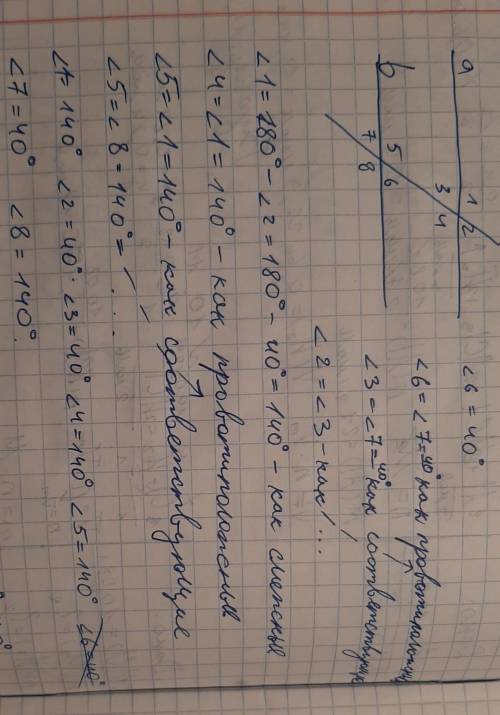 a
b
1
2
3
4
5
6
7
8
∠6 = 40°
∠6 = ∠7 = 40° как противоположные
∠3 = ∠7 = 40° как соответствующие
∠2 = ∠3 - как ...
∠1 = 180° - ∠2 = 180° - 40° = 140° - как смежные
∠4 = ∠1 = 140° - как противоположные
∠5 = ∠1 = 140° - как соответствующие
∠5 = ∠8 = 140° = ...
∠1 = 140° ∠2 = 40° ∠3 = 40° ∠4 = 140° ∠5 = 140° ∠6 = 40°
∠7 = 40° ∠8 = 140°.